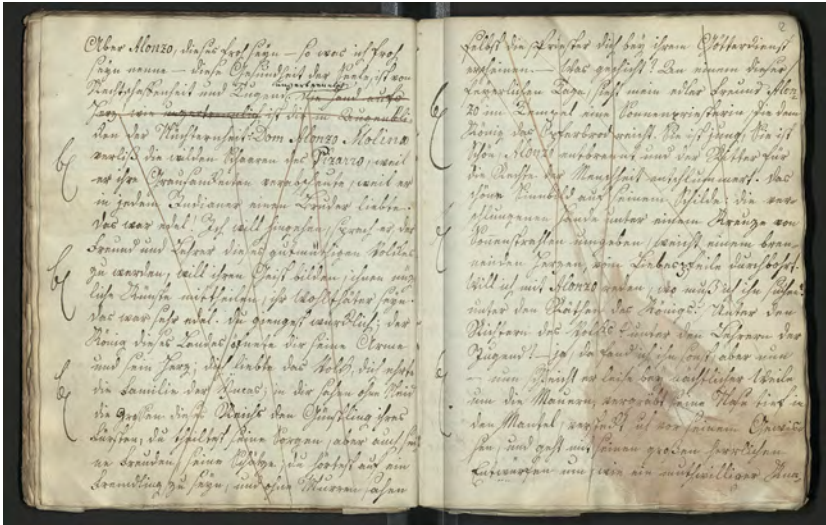 Aber Alonzo, dieses froh seyn — so was ich froh
seyn nenne — diese Gesundheit der Seele, ist von
Rechtschaffenheit und Tugend
unzertrennlich ist die in
der Nüchternheit. Dom Alonzo Molina
verließ die wilden Schaaren des Pizarro, weil
er ihre Grausamkeiten verabscheute, weil er
in jedem Indianer einen Bruder liebte.
Das war edel! Ich will hingehen, sprach er, der
Freund und Lehrer dieses gutmüthigen Volkes
zu werden, will ihren Geist bilden, ihnen nüz-
liche Künste mittheilen, ihr Wohlthäter seyn.
Das war sehr edel. Du giengst würklich, der
König dieses Landes öfnete dir seine Arme
und sein Herz, dich liebte das Volk, dich ehrte
die Familie der Yncas, in dir sahen ohne Neid
die Großen dieses Reichs den Günstling ihres
Fürsten, du theiltest seine Sorgen, aber auch sei-
ne Freuden, seine Schäze, du hörtest auf ein
Fremdling zu seyn, und ohne Murren sahen
2
selbst die Priester dich bey ihrem Götterdienst
erscheinen — Was geschieht! An einem dieser
feyerlichen Tage, sieht mein edler Freund Alon-
zo im Tempel eine Sonnenpriesterin die dem
König das Opferbrod reicht. Sie ist jung, Sie ist
schön, Alonzo entbrennt und der Ritter für
die Rechte der Menschheit entschlummert. Das
schöne Sinnbild auf seinem Schilde: die ver-
schlungenen Hände unter einem Kreuze von
Sonnenstrahlen umgeben, weicht einem bren-
nenden Herzen, vom Liebespfeile durchbohrt.
Will ich mit Alonzo reden, wo muß ich ihn suchen?
unter den Räthen des Königs? Unter den
Richtern des Volks? unter den Lehrern der
Jugend? — ja, da fand ich ihn sonst, aber nun
— nun schleicht er leise bey nächtlicher Weile
um die Mauern, vergräbt seine Nase tief in
den Mantel, versteckt sich vor seinem Gewis-
sen, und geht mit seinen großen herrlichen
Entwürfen um, wie ein muthwilliger Kna-